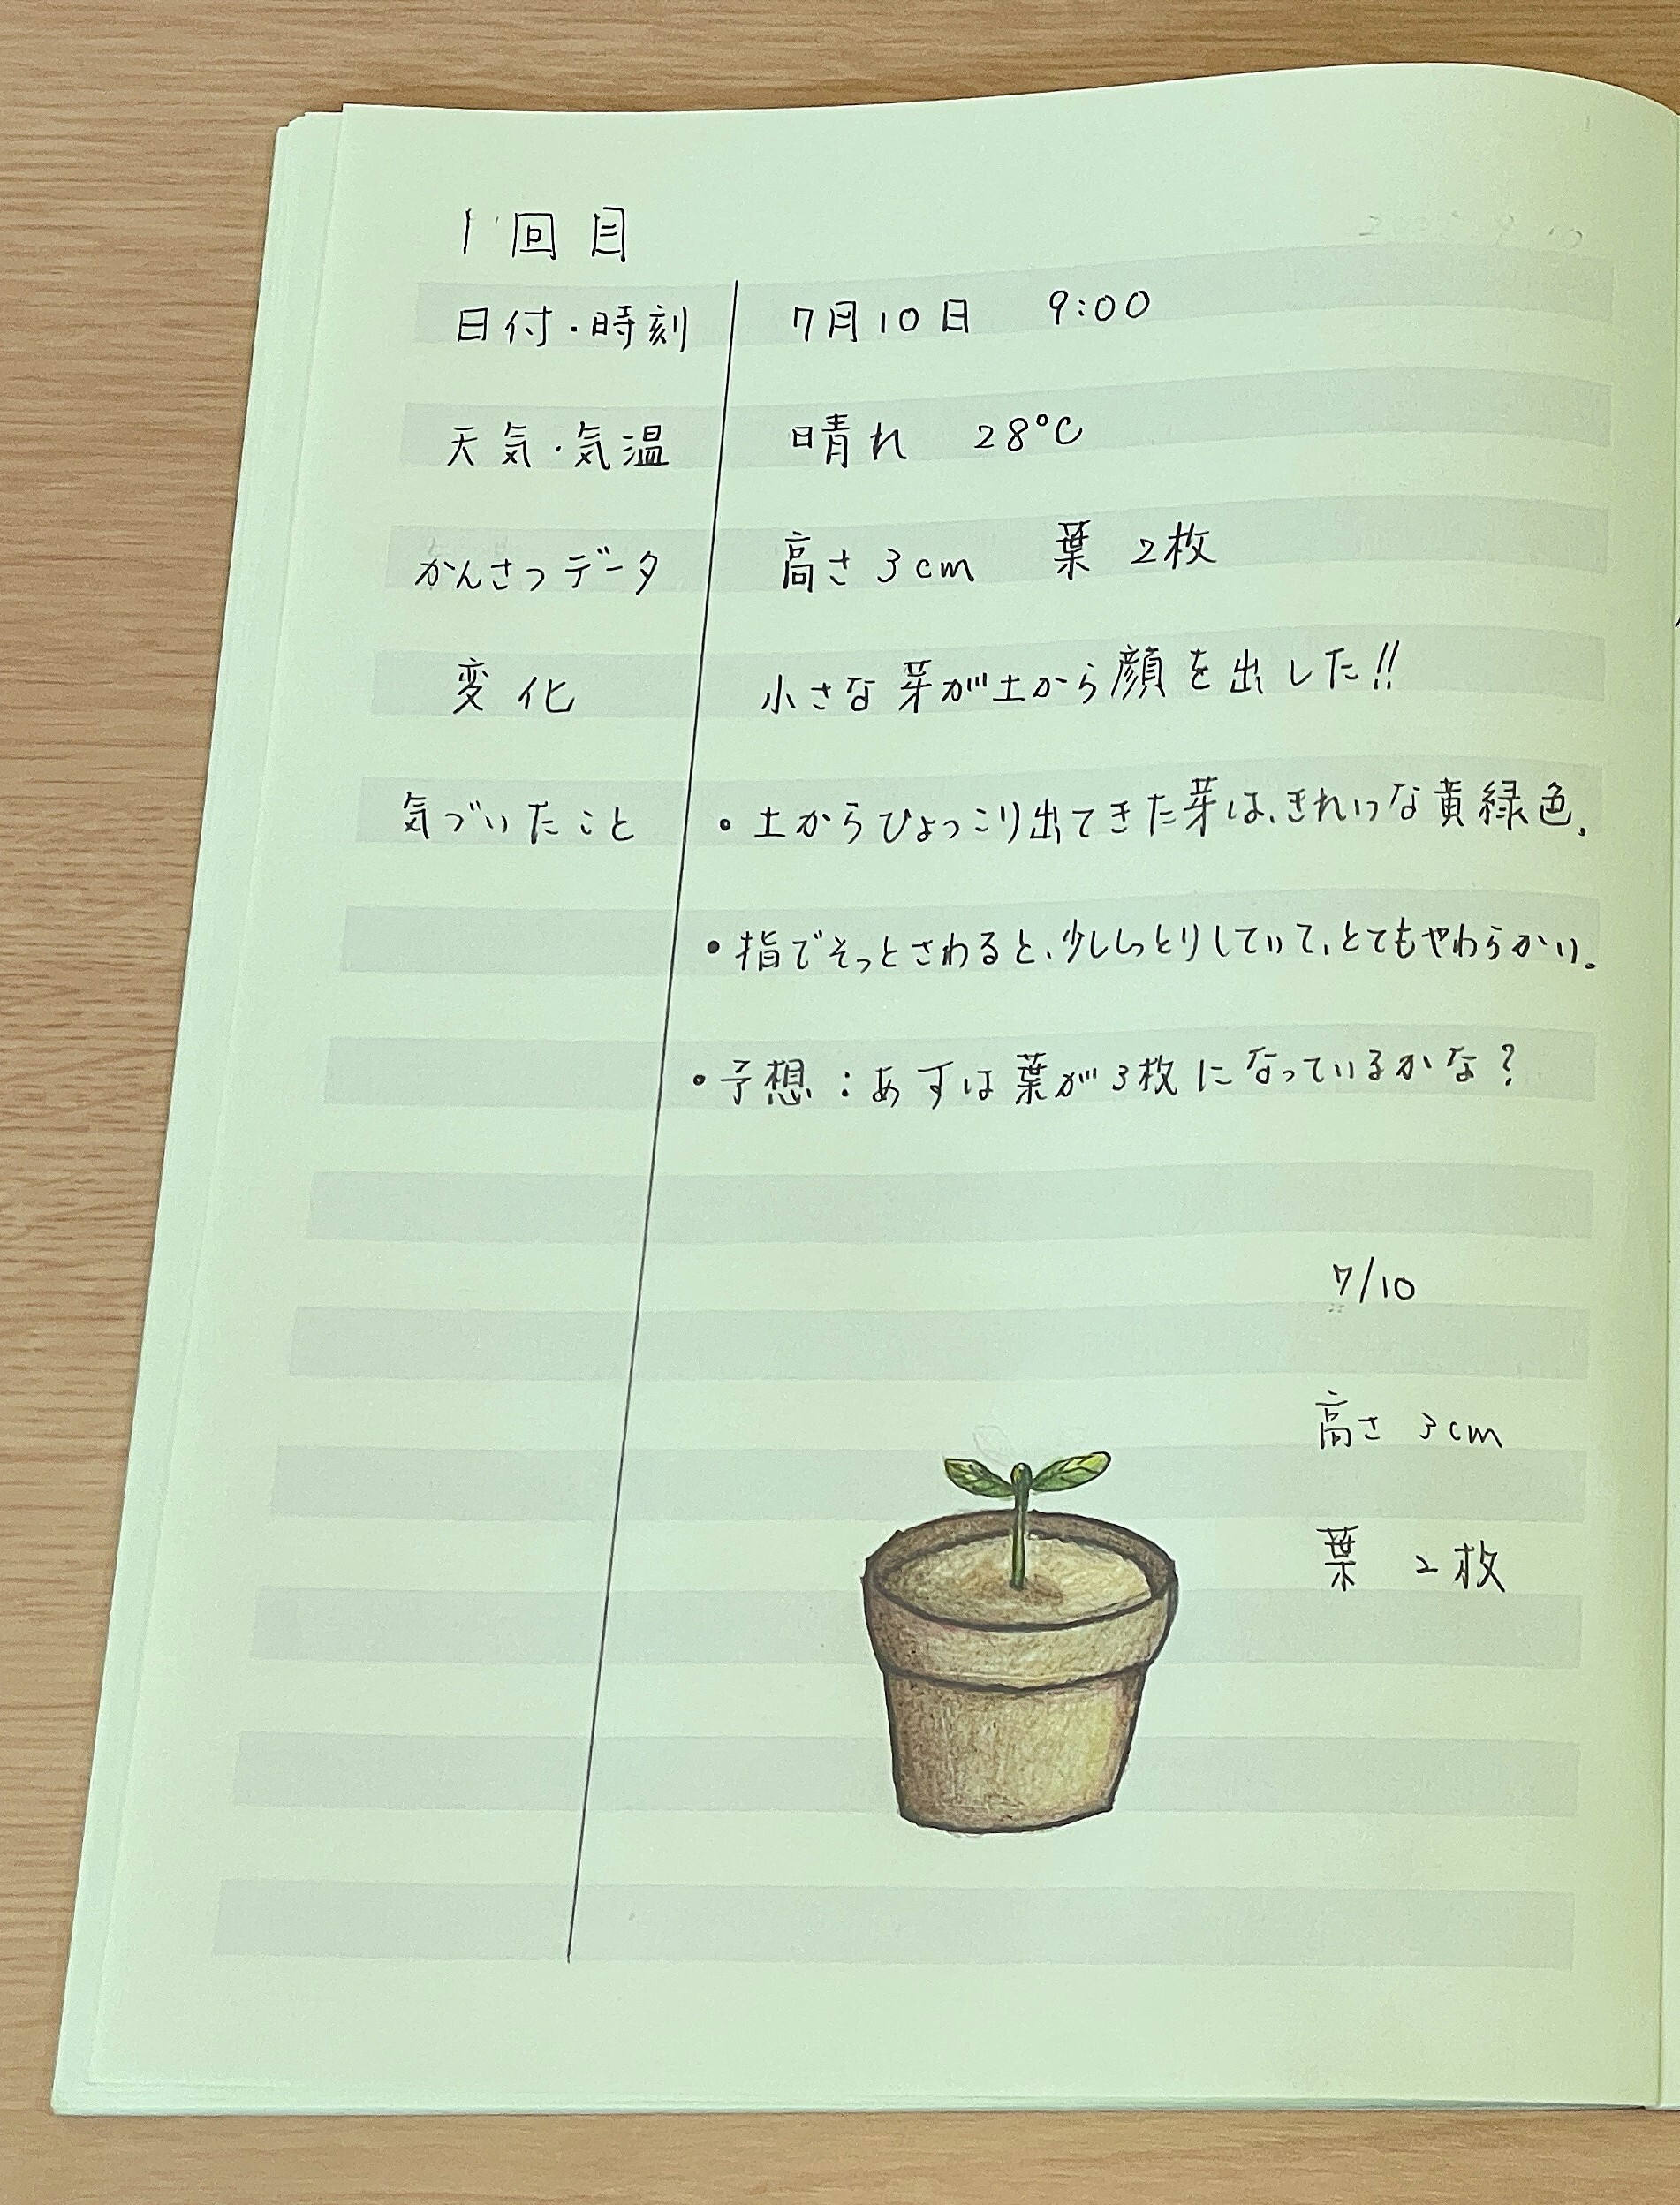 1回目
日付・時刻 7月10日 9:00
天気・気温 晴れ 28℃
かんさつデータ 高さ3cm 葉 2枚
変化 小さな芽が土から顔を出した!!
気づいたこと ・土からひょっこり出てきた芽は、きれいな黄緑色。
・指でそっとさわると、少ししっとりしていて、とてもやわらかい。
・予想：あすは葉が3枚になっているかな？
7/10
高さ 3cm
葉 2枚